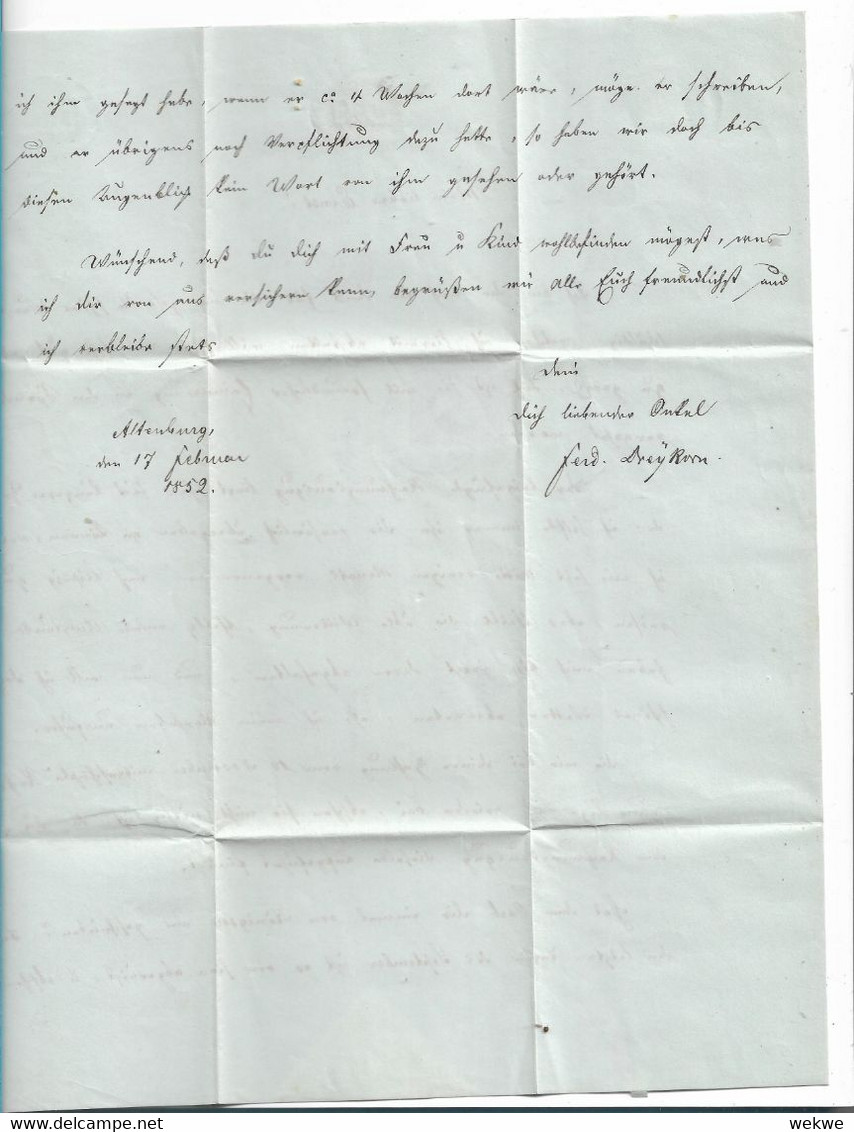 ich ihm gesagt habe, wenn er ca 4 Wochen dort wäre, möge er schreiben,
und er übrigens noch Verpflichtung dazu hatte, so haben wir doch bis
diesen Augenblick kein Wort von ihm gesehen oder gehört.
Wünschend, daß du dich mit Frau u Kind wohlbefinden mögest, was
ich dir von uns versichern kann, begrüßen wir alle Euch freundlichst und
ich verbleibe stets
dein
dich liebender Onkel
Ferd. Dreykorn.
Altenburg,
den 17 Februar
1852.
wekwe